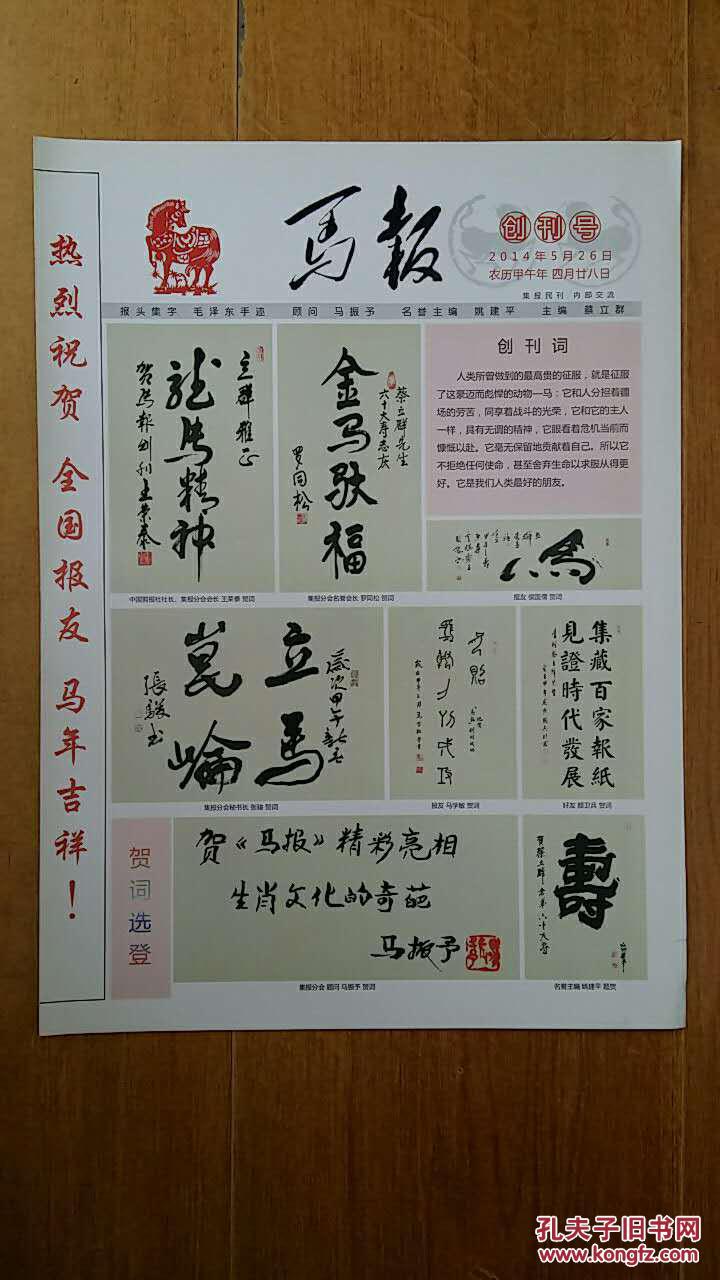 热烈祝贺 全国报友 马年吉祥！
馬報
创刊号
2014年5月26日
农历甲午年 四月廿八日
集报民刊 内部交流
报头集字 毛泽东手迹 顾问 马振予 名誉主编 姚建平 主编 蔡立群
立群雅正
龙马精神
贺马报创刊 王荣泰
中国剪报社社长、集报分会会长 王荣泰 贺词
蔡立群先生
六十大寿志庆
金马驮福
罗同松
集报分会名誉会长 罗同松 贺词
创刊词
人类所曾做到的最高贵的征服，就是征服
了这豪迈而彪悍的动物—马：它和人分担着疆
场的劳苦，同享着战斗的光荣，它和它的主人
一样，具有无谓的精神，它眼看着危机当前而
慷慨以赴。它毫无保留地贡献着自己。所以它
不拒绝任何使命，甚至舍弃生命以求服从得更
好。它是我们人类最好的朋友。
馬
报友 侯国儒 贺词
歲次甲午
立馬
崑崙
張駿书
集报分会秘书长 张骏 贺词
报友 马学敏 贺词
集藏百家報紙
見證時代發展
好友 颜卫兵 贺词
贺词选登
贺《马报》精彩亮相
生肖文化的奇葩
马振予
集报分会 顾问 马振予 贺词
壽
贺蔡立群老弟六十大寿
名誉主编 姚建平 题贺
孔夫子旧书网
www.kongfz.com